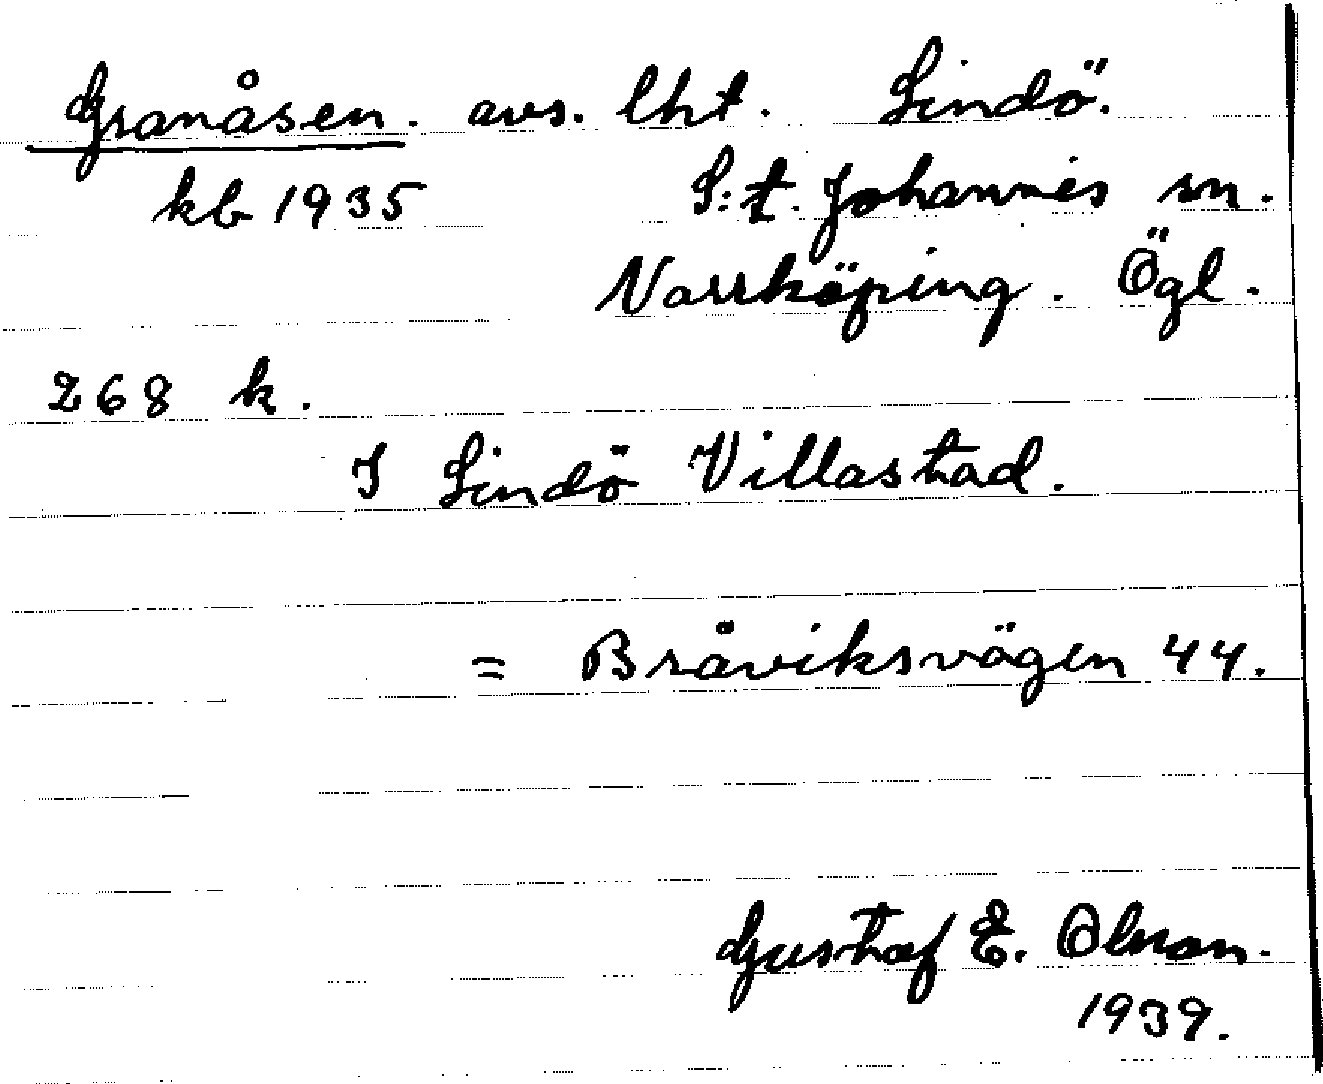 Granåsen. avs. lht. Lindö.
kb 1935 S:t. Johannes sn.
Norrköping. Ögl.
268 k.
I Lindö Villastad.
= Bråviksvägen 44.
Gustaf E. Olson.
1939.